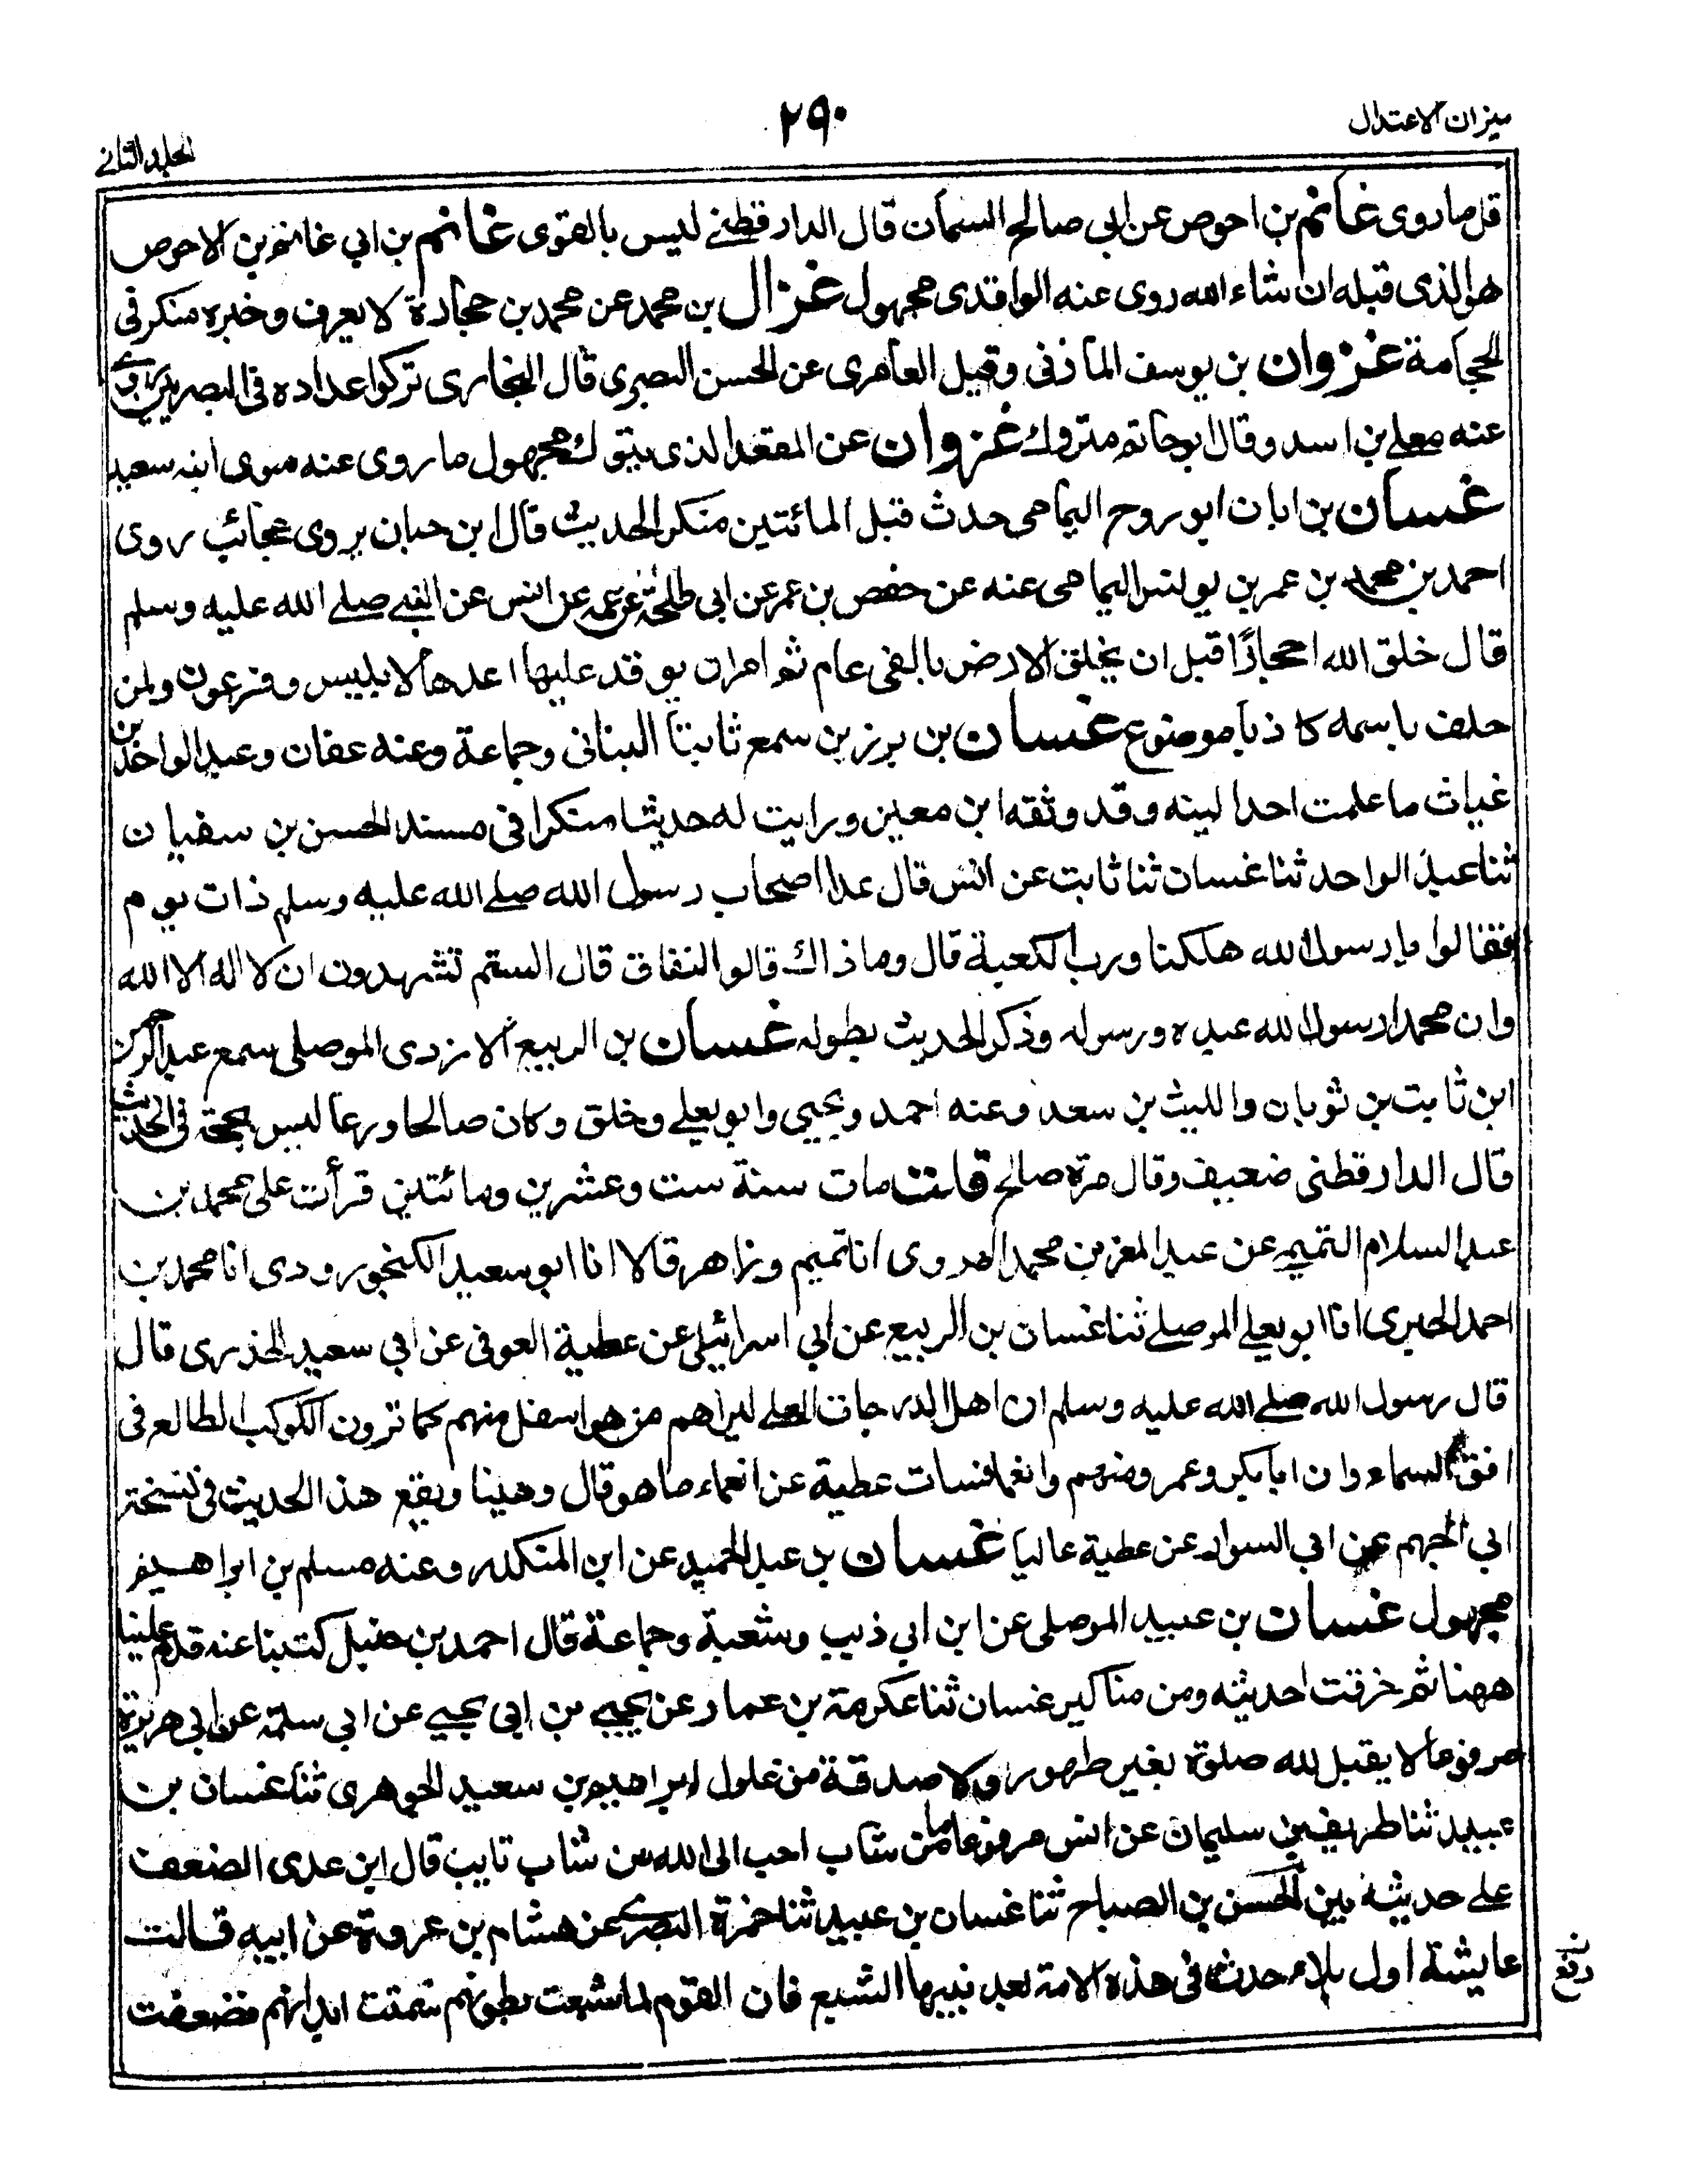 ميزان الاعتدال
٢٩٠
الجلد الثاني
قل ما روى غانم بن احوص عن ابي صالح السمان قال الدارقطني ليس بالقوى غانم بن ابي غانم بن الاحوص
هو الذى قبله ان شاء الله روى عنه الواقدى مجهول غزال بن محمد عن محمد بن حجادة لا يعرف وخبره منكر في
الحجامة غزوان بن يوسف المازنى وقيل العامرى عن الحسن البصرى قال البخارى تركوا عداده في البصريين روى
عنه معلى بن اسد وقال ابو حاتم متروك غزوان عن المقعد الذى بتبوك مجهول ما روى عنه سوى ابنه سعيد
غسان بن ابان ابو روح اليمامى حدث قبل المائتين منكر الحديث قال ابن حبان يروى عجائب روى
احمد بن محمد بن عمر بن يونس اليمامى عنه عن حفص بن عمر عن ابي طلحة عن عمه عن انس عن النبي صلے الله عليه وسلم
قال خلق الله احجارًا قبل ان يخلق الارض بالفى عام ثم امر ان يوقد عليها اعدها لابليس وفرعون ولمن
حلف باسمه كاذبا موضوع غسان بن برزين سمع ثابتا البنانى وجماعة وعنه عفان وعبد الواحد بن
غياث ما علمت احدا لينه وقد وثقه ابن معين ورايت له حديثا منكرا في مسند الحسن بن سفيان
ثنا عبد الواحد ثنا غسان ثنا ثابت عن انس قال غدا اصحاب رسول الله صلے الله عليه وسلم ذات يوم
فقالوا يا رسول الله هلكنا ورب الكعبة قال وما ذاك قالوا النفاق قال الستم تشهدون ان لا اله الا الله
وان محمدا رسول الله عبده ورسوله وذكر الحديث بطوله غسان بن الربيع الازدى الموصلى سمع عبد الرحمن
ابن ثابت بن ثوبان والليث بن سعد وعنه احمد ويحيى وابو يعلے وخلق وكان صالحا ورعا ليس بحجة في الحديث
قال الدارقطنى ضعيف وقال مرة صالح قلت مات سنة ست وعشرين ومائتين قرأت على محمد بن
عبد السلام التميمي عن عبد المعز بن محمد الهروى انا تميم وزاهر قالا انا ابو سعيد الكنجرودى انا محمد بن
احمد الحيرى انا ابو يعلے الموصلے ثنا غسان بن الربيع عن ابي اسرائيل عن عطية العوفى عن ابي سعيد الخدرى قال
قال رسول الله صلے الله عليه وسلم ان اهل الدرجات العلے ليراهم من هو اسفل منهم كما ترون الكوكب الطالع فى
افق السماء وان ابا بكر وعمر منهم وانعما فسات عطية عن انعماء ما هو قال وهنيا ويقع هذا الحديث في نسخة
ابي الجهم عن ابي السوار عن عطية عاليا غسان بن عبد الحميد عن ابن المنكدر وعنه مسلم بن ابراهيم
مجهول غسان بن عبيد الموصلى عن ابن ابي ذيب وشعبة وجماعة قال احمد بن حنبل كتبنا عنه قدم علينا
ههنا ثم خرقت احديثه ومن مناكير غسان ثنا عكرمة بن عمار عن يحيى بن ابي يحيے عن ابي سلمة عن ابي هريرة
مرفوعا لا يقبل لله صلوة بغير طهور ولا صدقة من غلول ابراهيم بن سعيد الجوهرى ثنا غسان بن
عبيد ثنا طريف بن سليمان عن انس مرفوعا ما من شاب احب الى الله من شاب تايب قال ابن عدى الضعف
على حديثه بين الحسن بن الصباح ثنا غسان بن عبيد ثنا حمزة البصرى عن هشام بن عروة عن ابيه قالت
عايشة اول بلاء حدث فى هذه الامة بعد نبيها الشبع فان القوم لما شبعت بطونهم سمنت ابدانهم فضعفت